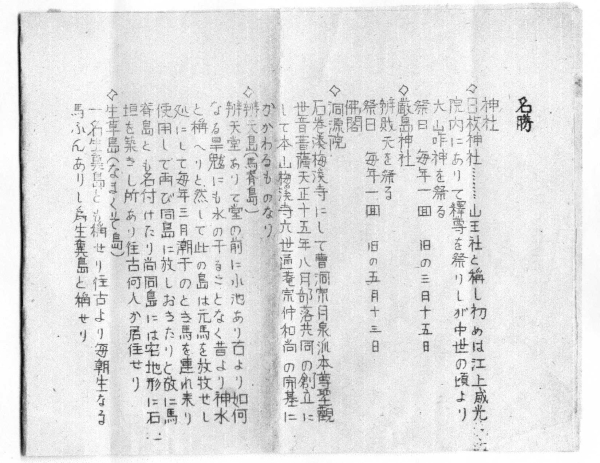 名勝
神社
◇日枝神社………山王社と稱し初めは江上威光
院内にありて釋尊を祭りしが中世の頃より
大山咋神を祭る
祭日 毎年一回 旧の三日十五日
◇嚴島神社
辨財天を祭る
祭日 毎年一回 旧の五月十三日
佛閣
◇洞源院
石巻湊梅渓寺にして曹洞宗月泉派本尊聖觀
世音菩薩天正十五年八月部落共同の創立に
して本山梅渓寺六世通庵宗仲和尚の開基に
かかわるものなり
◇辨天島(馬脊島)
辨天堂ありて堂の前に小池あり古より如何
なる旱魃にも水の干ることなく昔より神水
と稱へりと然して此の島は元馬を放牧せし
処にして毎年三月潮干のとき馬を連れ来り
使用して再び同島に放しおきたりと故に馬
脊島とも名付けたり尚同島には宅地形に石
垣を築きし所あり往古何人か居住せり
◇生草島(なまくさ島)
一名生糞島とも稱せり往古より毎朝生なる
馬ふんありし為生糞島と稱せり